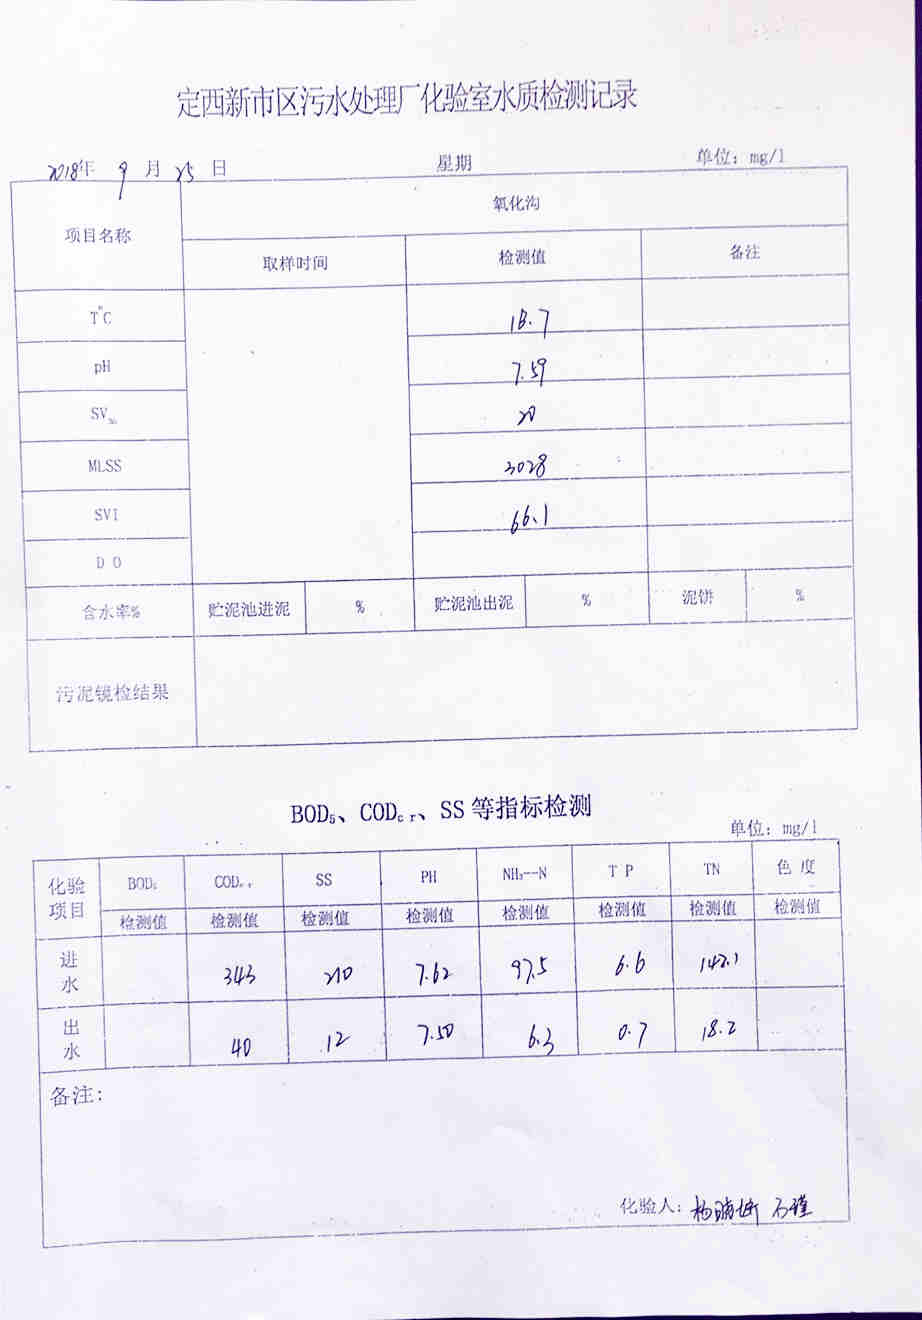 定西新市区污水处理厂化验室水质检测记录
2018年 9 月 25 日 星期 单位：mg/l
项目名称 氧化沟
取样时间 检测值 备注
T℃ 18.7
pH 7.59
SV₃₀ 20
MLSS 3028
SVI 66.1
D O
含水率% 贮泥池进泥 % 贮泥池出泥 % 泥饼 %
污泥镜检结果
BOD₅、CODcr、SS 等指标检测
单位：mg/l
化验项目 BOD₅ CODcr SS PH NH₃--N T P TN 色 度
检测值 检测值 检测值 检测值 检测值 检测值 检测值 检测值
进水 343 210 7.62 97.5 6.6 142.1
出水 40 12 7.50 6.3 0.7 18.2
备注：
化验人：杨 石瑾